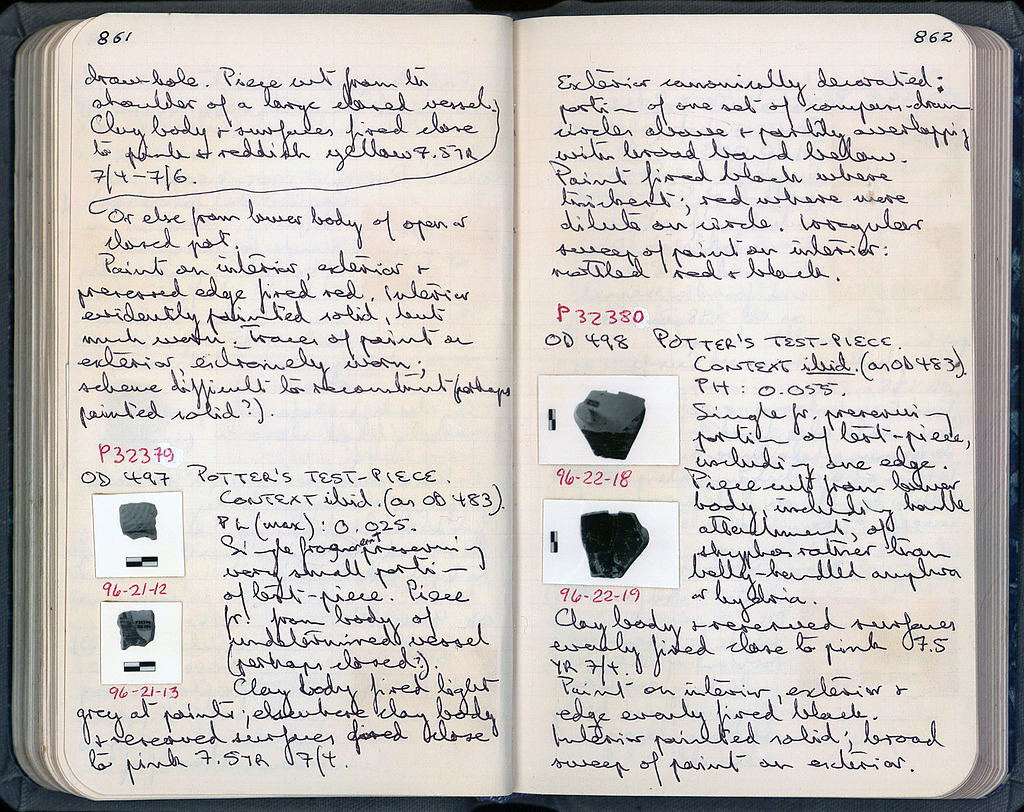 861
draw-hole. Piece cut from
shoulder of a large closed vessel.)
Clay body + surfaces fired close
to pink + reddish yellow 7.5YR
7/4–7/6.
Or else from lower body of open or
closed pot.
Paint on interior, exterior +
preserved edge fired red. Interior
evidently painted solid, but
much worn. Traces of paint on
exterior, extremely worn;
scheme difficult to reconstruct (perhaps
painted solid?).
P32379
OD 497 POTTER'S TEST-PIECE.
CONTEXT ibid. (as OD 483).
PL (max): 0.025.
Single fragment preserving
very small portion
of test-piece. Piece
fr. from body of
undetermined vessel
(perhaps closed?).
96-21-12
96-21-13
Clay body fired light
grey at points; elsewhere clay body
+ reserved surfaces fired close
to pink 7.5YR 7/4.
862
Exterior canonically decorated:
portion of one set of compass-drawn
circles above + partially overlapping
with broad band below.
Paint fired black where
thickest; red where more
dilute on circle. Irregular
sweep of paint on interior:
mottled red + black.
P32380
OD 498 POTTER'S TEST-PIECE.
CONTEXT ibid. (as OD 483).
PH: 0.055.
Single fr. preserving
portion of test-piece,
including one edge.
Piece cut from lower
body, including handle
attachment, of
skyphos rather than
belly-handled amphora
or hydria.
96-22-18
96-22-19
Clay body + reserved surfaces
evenly fired close to pink 7.5
YR 7/4.
Paint on interior, exterior +
edge evenly fired black.
Interior painted solid; broad
sweep of paint on exterior.